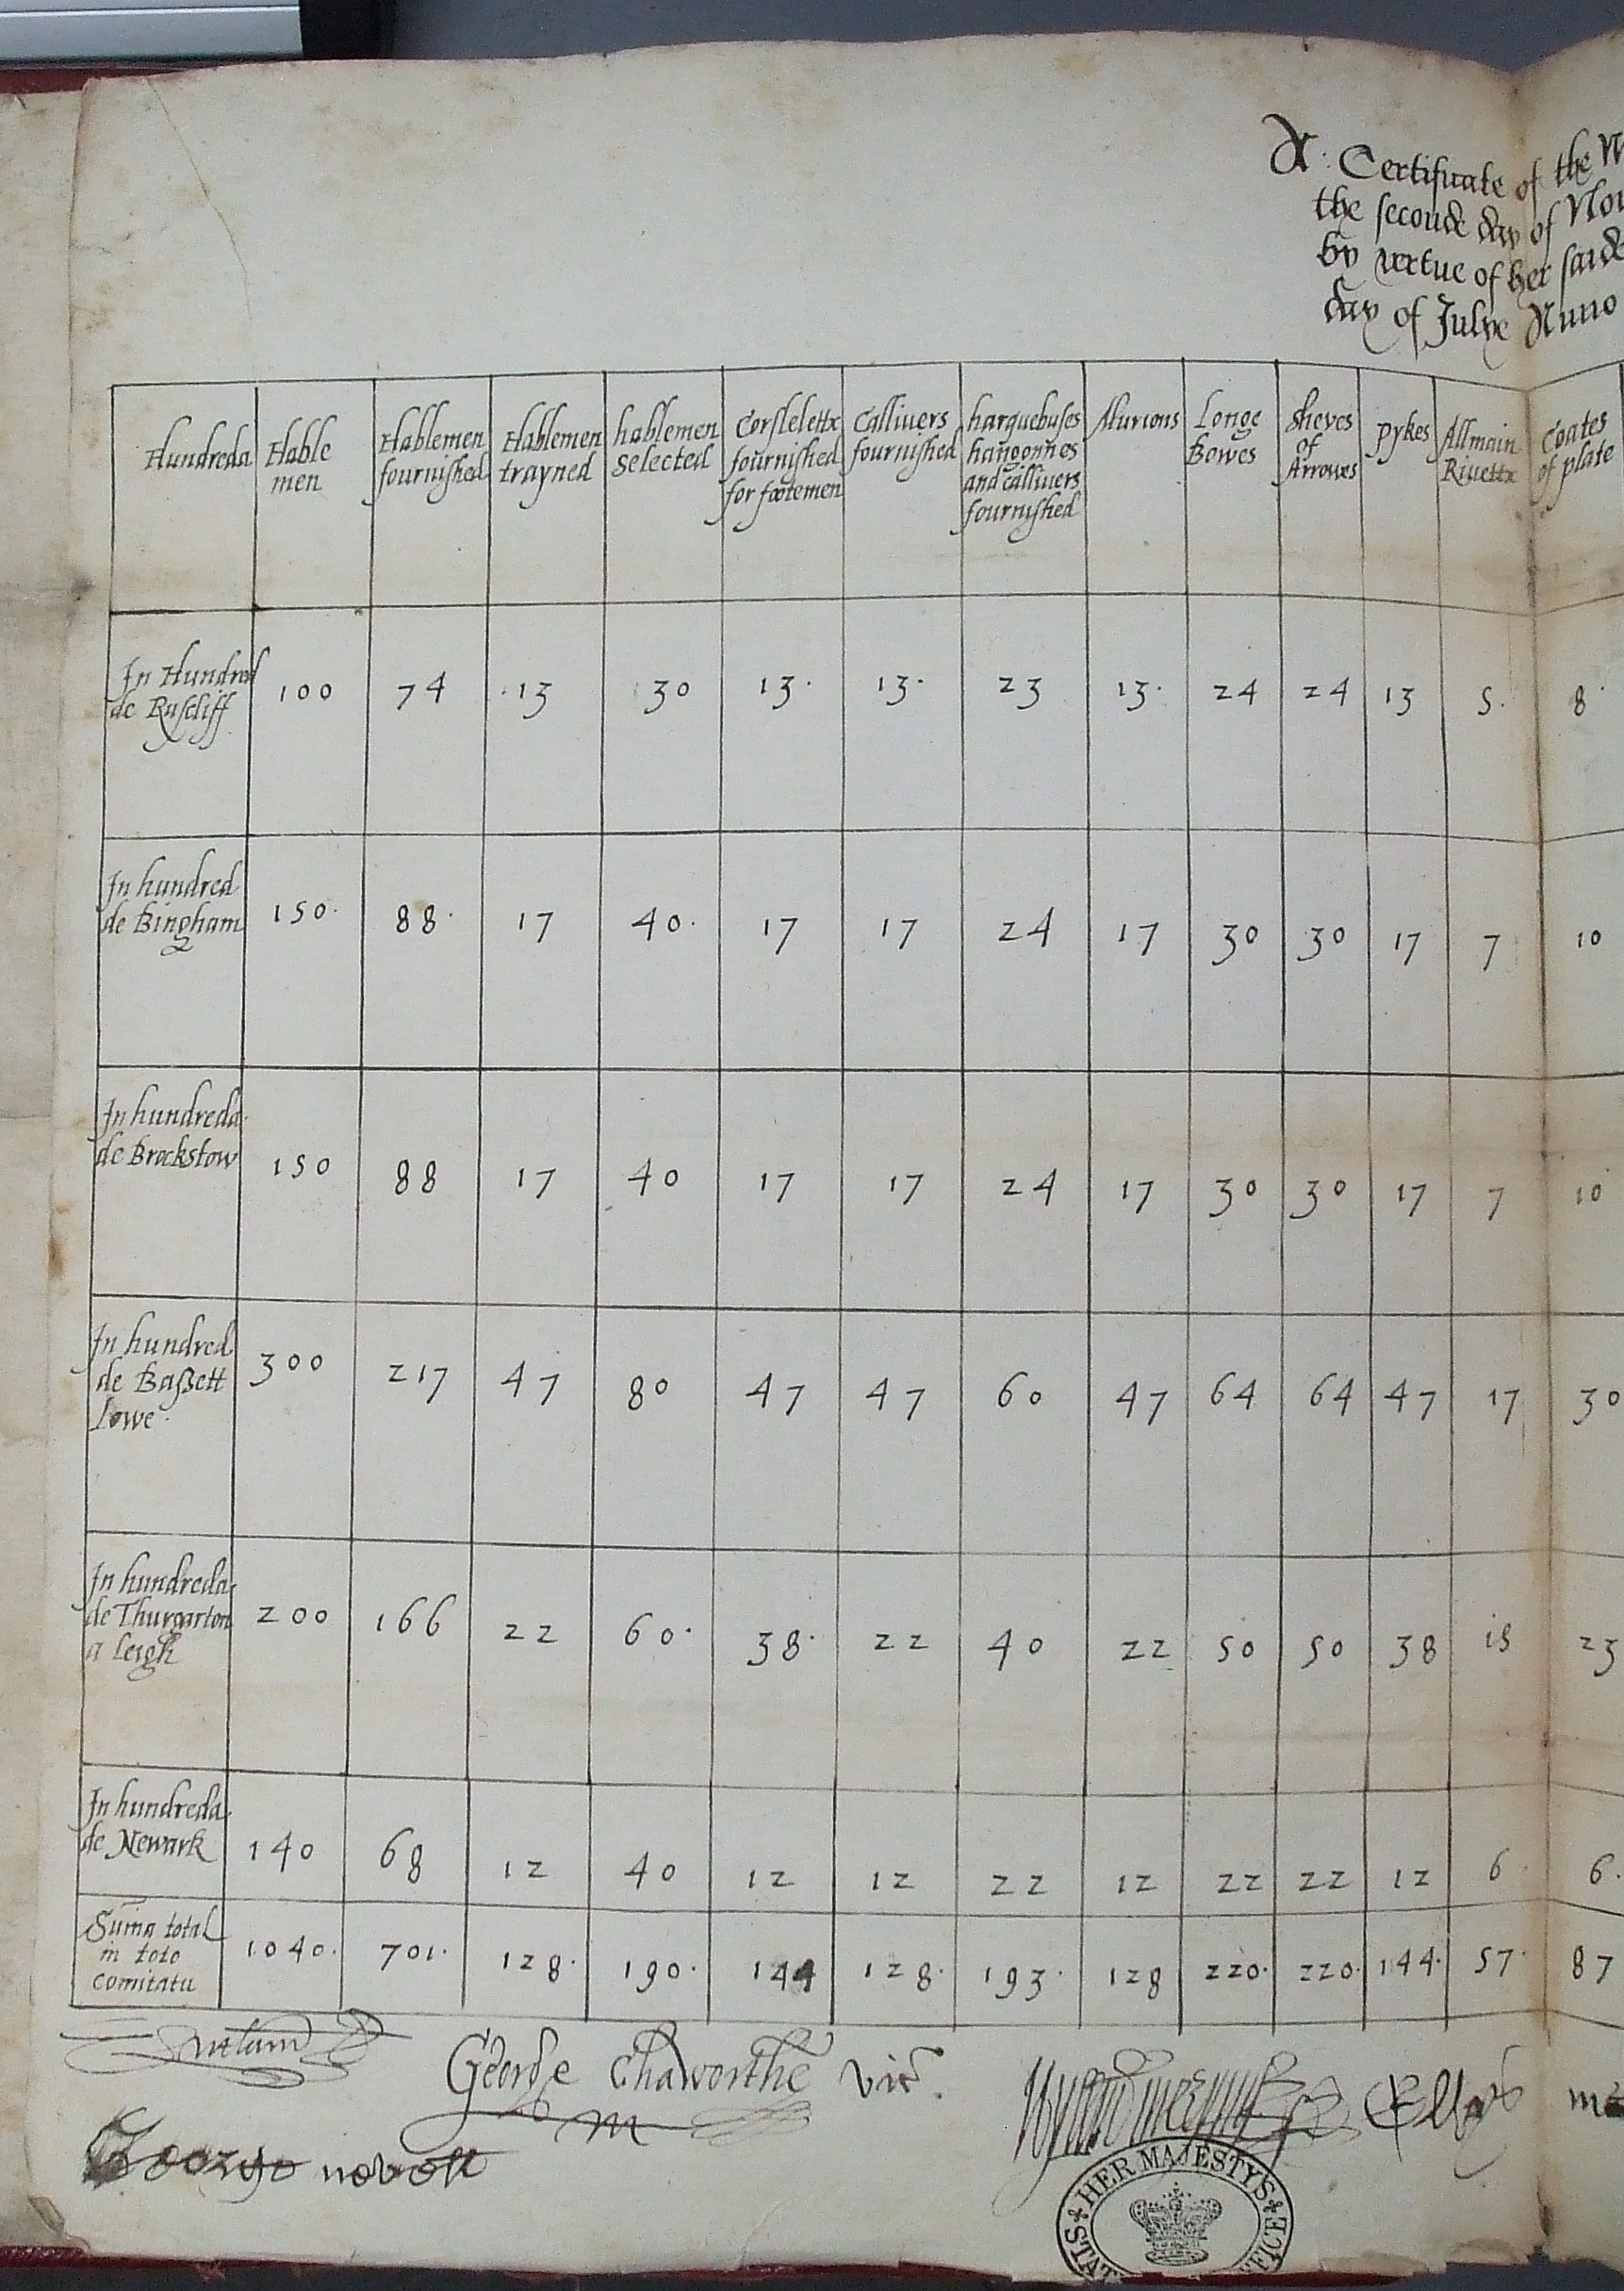 A: Certificate of the
the seconde day of Nou
by vertue of her saide
day of Julye Anno
Hundreda
Hable
men
Hablemen
fournished
Hablemen
trayned
hablemen
selected
Corslelettx
fournished
for footemen
Callivers
fournished
harquebuses
hangonnes
and callivers
fournished
Murions
Longe
Bowes
Sheves
of
Arrowes
Pykes
Allmain
Rivettx
Coates
of plate
In Hundred
de Ruscliff
100 74 13 30 13. 13. 23 13. 24 24 13 5. 8
In hundred
de Bingham
150. 88. 17 40. 17 17 24 17 30 30 17 7 10
In hundreda
de Brockstow
150 88 17 40 17 17 24 17 30 30 17 7 10
In hundred
de Baßett
Lowe
300 217 47 80 47 47 60 47 64 64 47 17 30
In hundreda
de Thurgarton
a Leigh
200 166 22 60. 38. 22 40 22 50 50 38 15 23
In hundreda
de Newark
140 68 12 40 12 12 22 12 22 22 12 6 6.
Suma total
in toto
Comitatu
1040. 701. 128. 190. 144 128. 193. 128 220. 220. 144. 57. 87
George Chaworthe vic.
George nevell
HER MAJESTYS
STAT FFICE